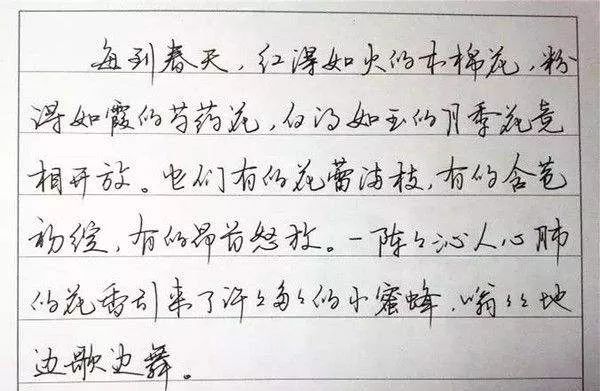 每到春天，红得如火的木棉花，粉
得如霞的芍药花，白得如玉的月季花竞
相开放。它们有的花蕾满枝，有的含苞
初绽，有的昂首怒放。一阵々沁人心肺
的花香引来了许々多々的小蜜蜂，嗡々地
边歌边舞。